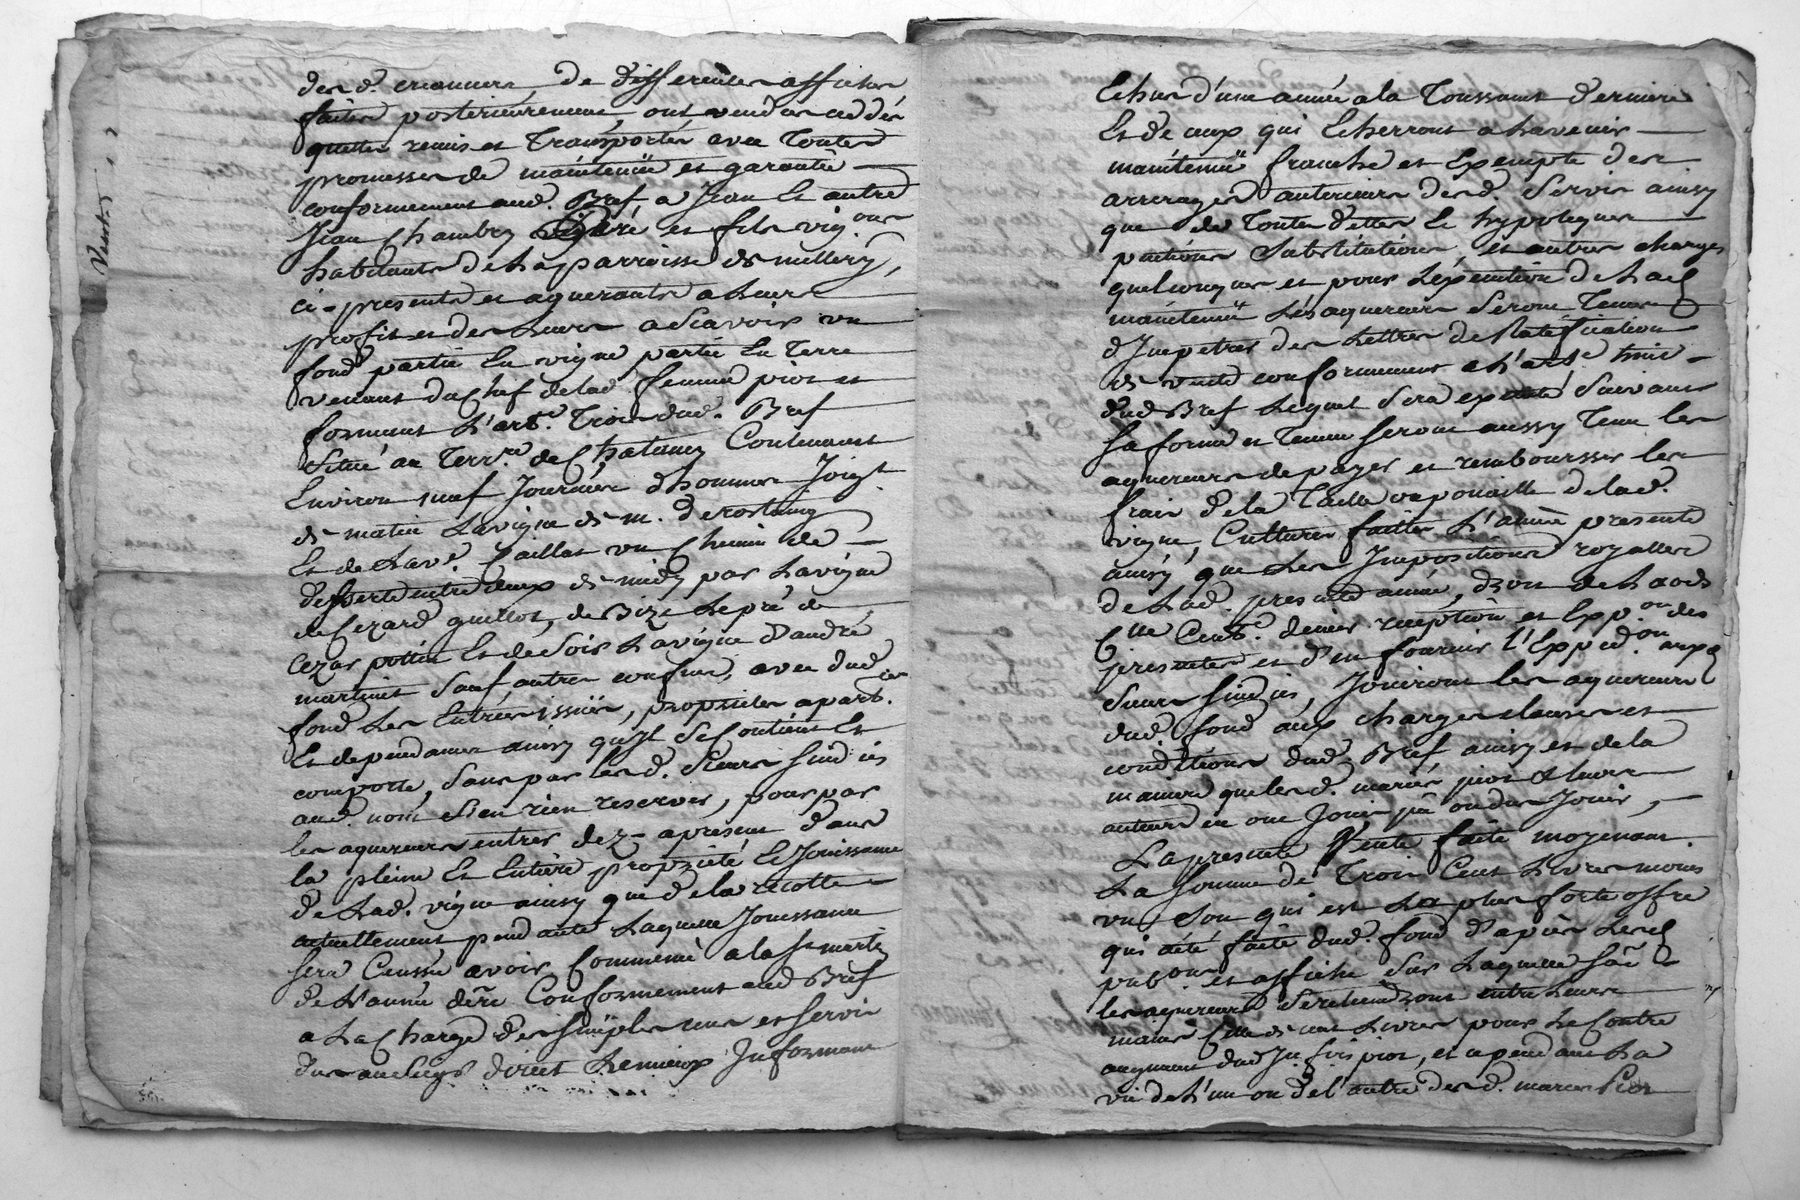 Vente
des d. creanciers, de differentes affiches
faites posterieurement, ont vendus ceddés
quittes remis et Transportés avec Toutes
promesses de maintenüe et garantie
conformement aud. Bref a Jean Et autre
Jean Chambry Pere et fils vig.ons
habitants de La parroisse de millery,
ci-presents et aquerants a Leurs
profits et des Leurs a Scavoir un
fond partie En vigne partie En Terre
venant du Chef de lad. femme piot et
formant L'art.e Trois dud. Bref
Situé au Terr.re de Chatanay Contenant
Environ neuf Journées d'hommes Joig.t
de matin La vigne de m. derostaing
Et de La v.e Caillat un Chemin de
desserte entre deux de midy par La vigne
de Cezard guillot, de Bize Le pré de
Cezar pottin Et de Soir La vigne d'andré
martinet Sauf autres confins, avec dud.
fond Les Entrées issües, proprietes apart.ces
Et dependances ainsy qu'il Se Contient Et
comporte, Sans par lesd. Sieurs Sindics
aud. nom S'en rien reserver, pour par
les aquereurs entrer dez-apresent dans
la pleine Et Entiere proprieté Et Jouissance
de Lad. vigne ainsy que de la recolte
actuellement pendante Laquelle Jouissance
sera Censée avoir Commencé a la St martin
de L'année dere Conformement aud Bref
a La Charge des Simples cens et Servis
dus au Seigr direct Le mieux Informant
Echus d'une année a la Toussaint derniere
Et de ceux qui Echerront a Lavenir
maintenüe franche et Exempte des
arrerages anterieurs desd. Servis ainsy
que de Toutes dettes Et hypoteques
pentions Substitutions, et autres charges
quelconques et pour L'exécution de Lad.
maintenüe Les aquereurs Seront Tenus
d'Impetrer des Lettres de Ratification
de vente conformement a L'art.e huit
dud Bref Lequel Sera executé Suivant
Sa forme et Teneur Seront aussy Tenu les
aquereurs de payer et rembourser les
frais de la Taille de lad.
vigne, Cultures faittes L'année presente
ainsy que Les Impositions royalles
de Lad. presente année, droit de Laods
C.me Cent.e denier reception et Exp.on des
presentes et d'en fournir l'Exped.on auxd.
Sieurs Sindics, Jouiront les aquereurs
dud fond aux charges clauses et
conditions dud. Bref ainsy et de la
maniere que lesd. mariés piot et leurs
auteurs en ont Joui pû ou dus Jouir,
La presente Vente faite moyenant
La Somme de Trois Cent Livres moins
un Sou qui est La plus forte offre
qui a été faite dud. fond d'après Lesd.
pub.ons et affiche Sur Laquelle Sõe
les aquereurs Se retiendront entre Leurs
mains Celle de cent Livres pour Le Contre
augment dud piot, et cependant La
vie de L'un ou de l'autre des d. mariés Piot